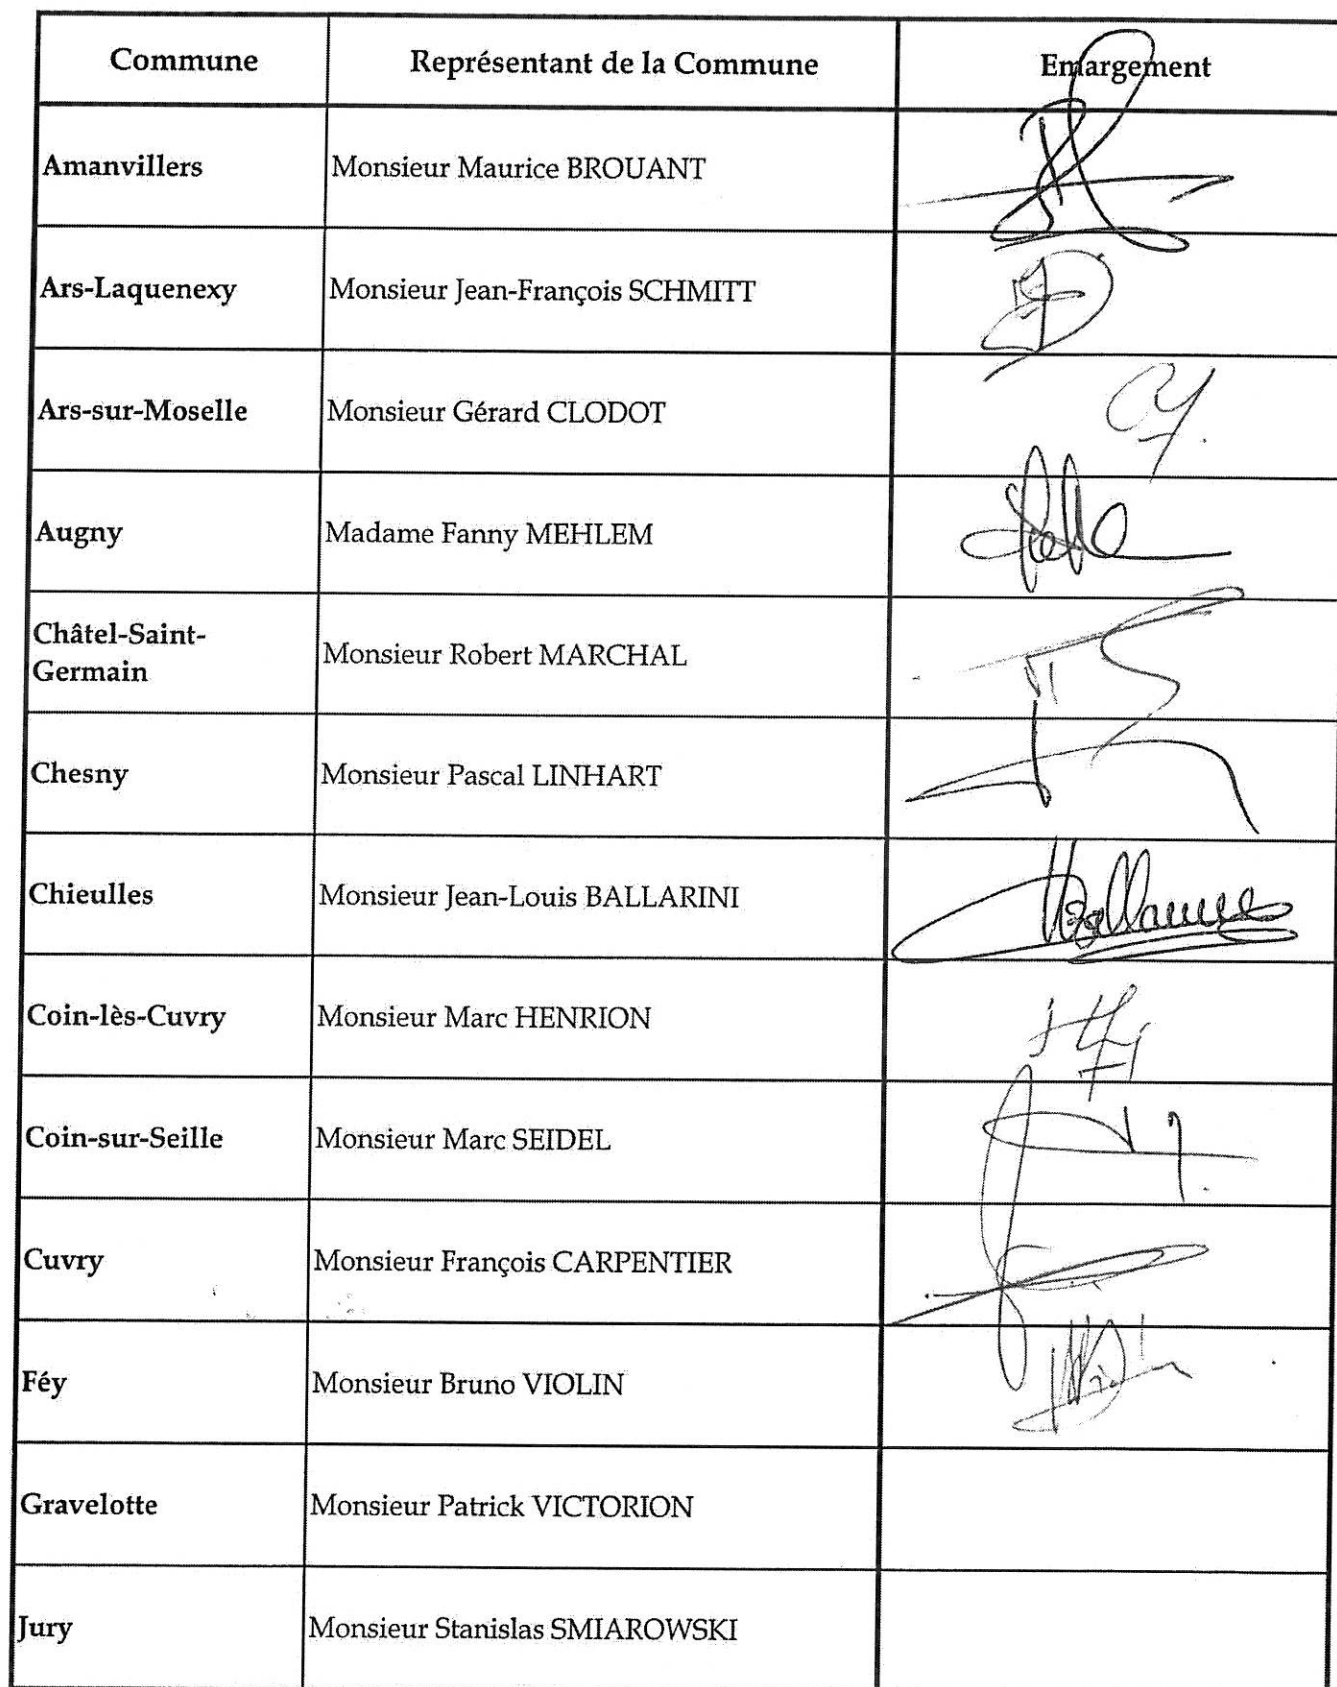 Commune Représentant de la Commune Emargement
Amanvillers Monsieur Maurice BROUANT
Ars-Laquenexy Monsieur Jean-François SCHMITT
Ars-sur-Moselle Monsieur Gérard CLODOT
Augny Madame Fanny MEHLEM
Châtel-Saint-
Germain Monsieur Robert MARCHAL
Chesny Monsieur Pascal LINHART
Chieulles Monsieur Jean-Louis BALLARINI
Coin-lès-Cuvry Monsieur Marc HENRION
Coin-sur-Seille Monsieur Marc SEIDEL
Cuvry Monsieur François CARPENTIER
Féy Monsieur Bruno VIOLIN
Gravelotte Monsieur Patrick VICTORION
Jury Monsieur Stanislas SMIAROWSKI